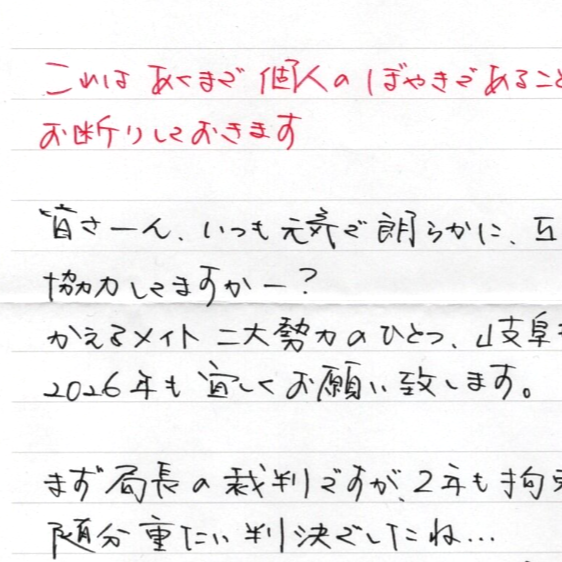 これは あくまで 個人の ぼやきであること
お断りしておきます
皆さーん、いつも元気で朗らかに、互
協力してますかー？
かえるメイト二大勢力のひとつ、岐阜
2026年も宜しくお願い致します。
まず局長の裁判ですが、2年も拘束
随分重たい判決でしたね…